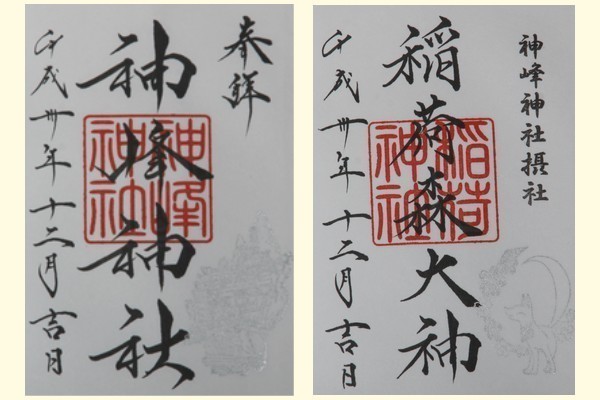 奉拝
神峰神社
神峰神社
平成卅年十二月吉日
神峰神社摂社
稲荷森大神
稲荷神社
平成卅年十二月吉日